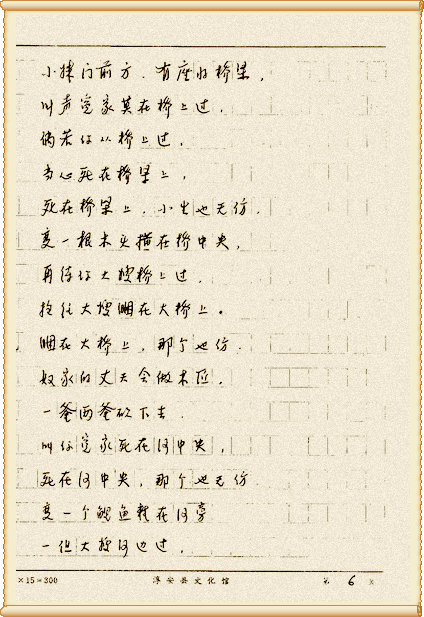 小妹门前方，有座好桥梁，
叫声冤家莫在桥上过，
倘若你从桥上过，
当心死在桥梁上，
死在桥梁上，小生也无仿，
变一根木头横在桥中央，
再待你大嫂桥上过，
拴住大嫂捆在大桥上。
捆在大桥上，那个也仿．
奴家的丈夫会做木匠，
一斧两斧砍下去．
叫你冤家死在河中央，
死在河中央，那个也无仿．
变一个鲤鱼 在河旁
一但大嫂河边过，
×15=300 淳安县文化馆 第 6